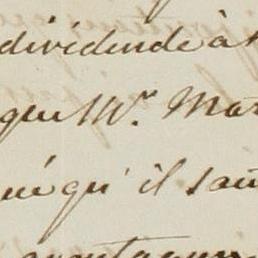 dividende à
que Mr. Mar
ué qu'il sau